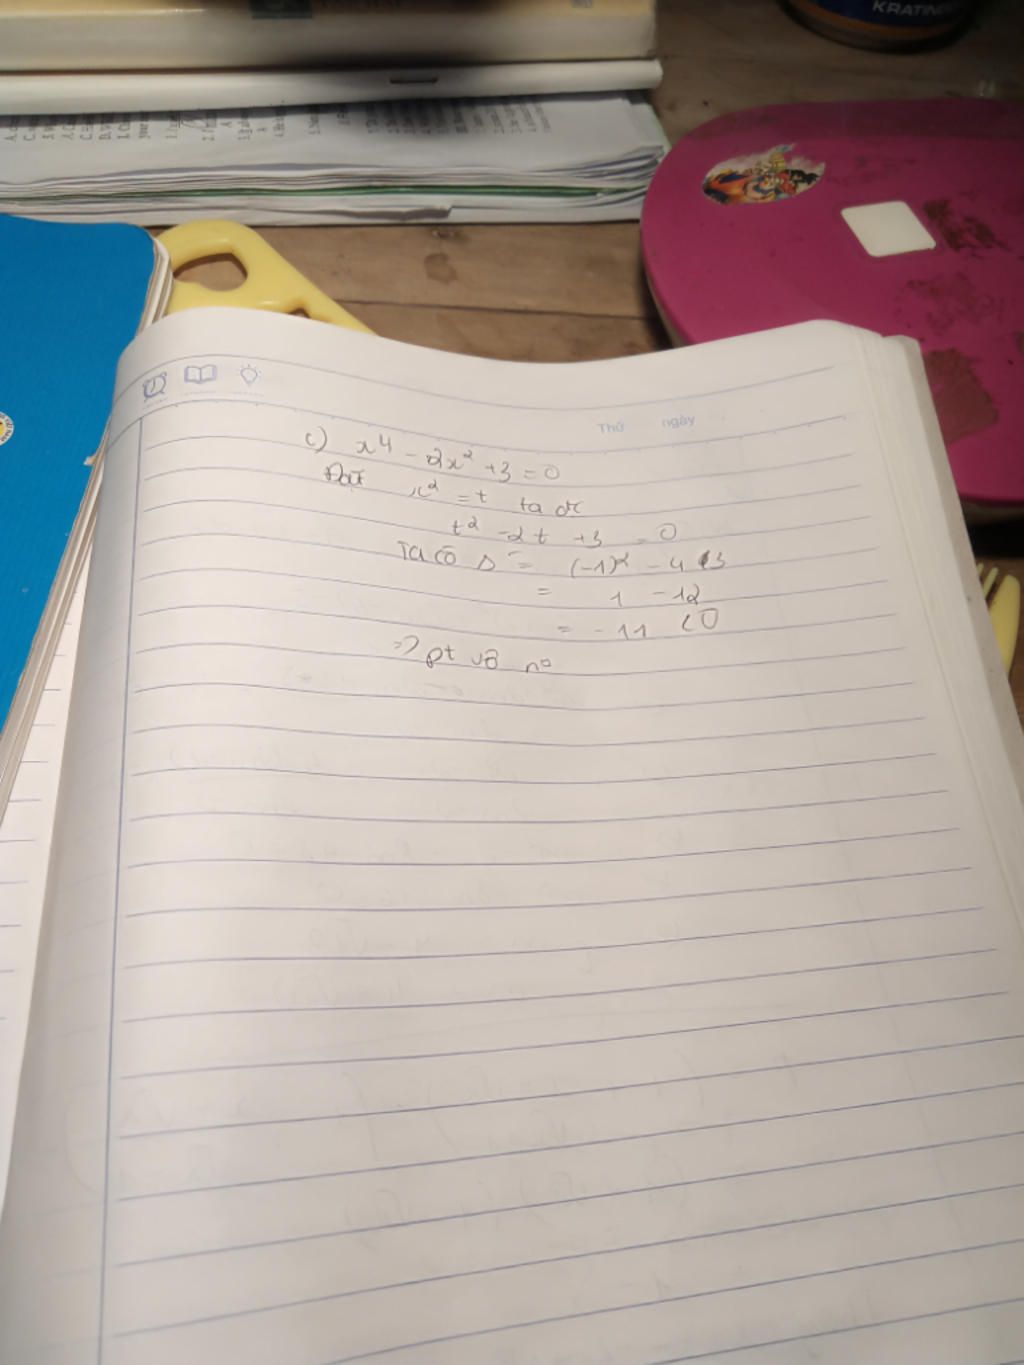 KRATING
Thứ ngày
c) x⁴ - 2x² + 3 = 0
Đặt x² = t ta đc
t² - 2t + 3 = 0
Ta có Δ = (-1)² - 4.3
= 1 - 12
= -11 < 0
=> pt vô no